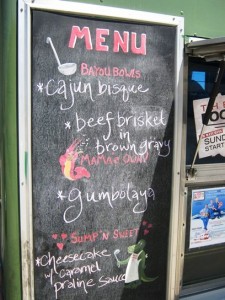 MENU
BAYOU BOWLS
*Cajun bisque
*beef brisket
in
brown gravy
MAMA'S OWN
*gumbolaya
SUMP'N SWEET
*Cheesecake
w/ caramel
praline sauce
SUND
START